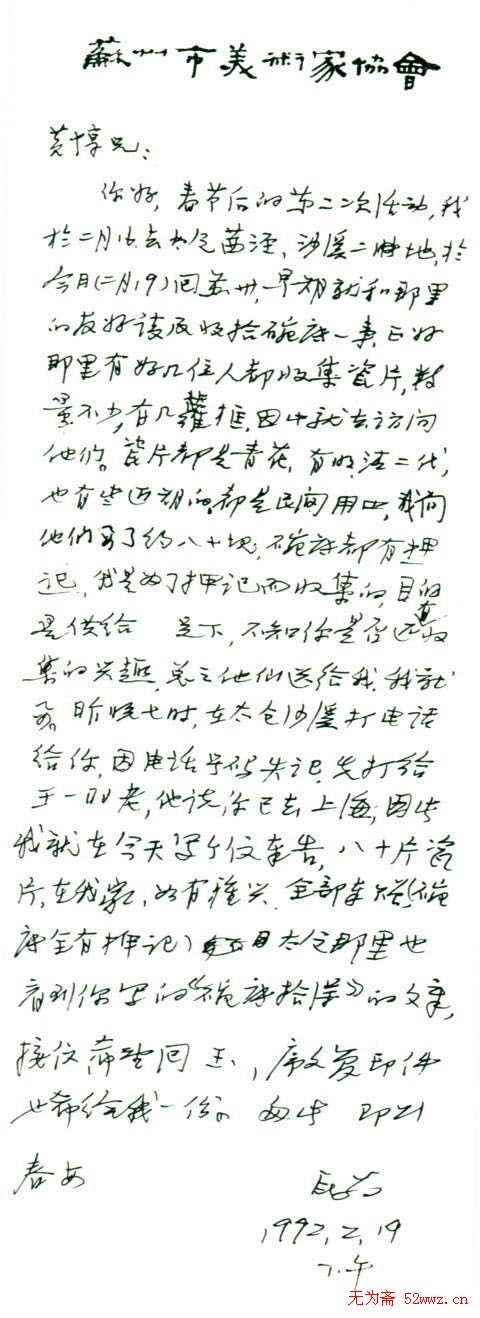 蘇州市美術家協會
黄惇兄:
你好,春节后的第二次活动,我
于二月16去太仓茜泾、沙溪二地,于
今日(二月19)回苏州,早期就和那里
的友好谈及收拾碗底一事,正好
那里有好几位人都收集瓷片,数
量不少,有几籮框,因此就去访问
他们。瓷片都是青花,有明、清二代,
也有些近期的,都是民间用皿,我向
他们要了约八十块,碗底都有押
记,我是为了押记而收集的,目的
是供给 足下,不知你是否还有收
集的兴趣,总之他们送给我,我就
要。昨晚七时,在太仓沙溪打电话
给你,因电话号码失记,先打给
老,他说你已去上海,因此
我就在今天写个信奉告,八十片瓷
片,在我家,如有雅兴,全部奉赠(碗
底全有押记)太仓那里也
看到你写的《碗底拾趣》的文章,
接信希望回玉,序文复印件
也希给我一份。匆此 即此
春安
1992,2,19
下午
无为斋 52wwz.cn